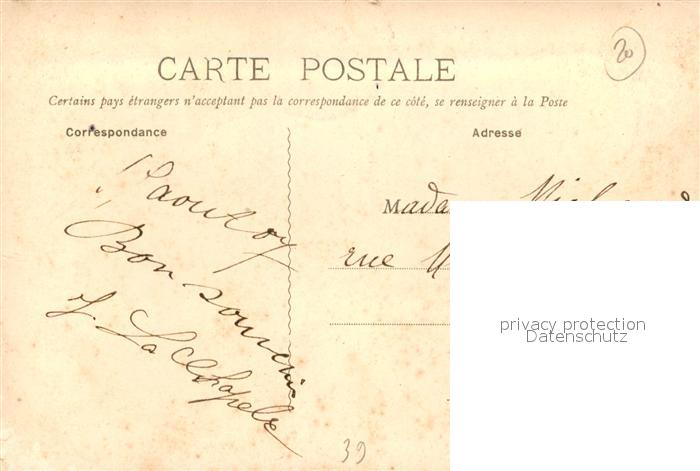 20
CARTE POSTALE
Certains pays étrangers n'acceptant pas la correspondance de ce côté, se renseigner à la Poste
Correspondance
Adresse
Bon souvenir
J. La Chapelle
Mada
rue
privacy protection
Datenschutz
39